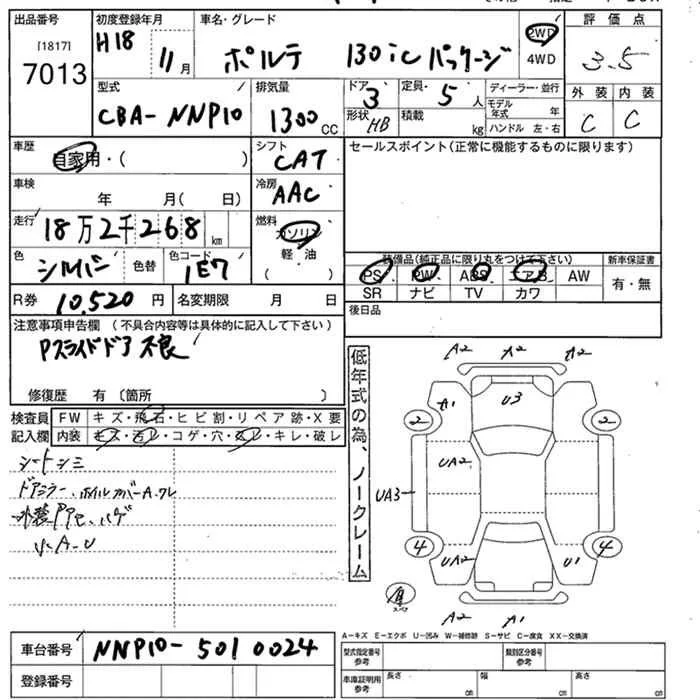 出品番号 初度登録年月 車名・グレード 評価点
[1817] H18 11月 ポルテ 130iCパッケージ 2WD 3.5
7013 4WD 外装 内装
型式 排気量 ドア 定員 ディーラー・並行 C C
CBA-NNP10 1300CC 3 5人 モデル年式 年
形状 HB 積載 kg ハンドル 左・右
車歴 シフト セールスポイント(正常に機能するものに限ります)
自家用・( ) CAT
車検 冷房
年 月(日) AAC
走行 18万2千268km 燃料
ガソリン
色 シルバー 色替 色コード 1E7 軽油
( )
装備品(純正品に限り丸をつけて下さい) 新車保証書
PS PW ABS エアB AW 有・無
SR ナビ TV カワ
R券 10,520円 名変期限 月 日 後日品
注意事項申告欄 (不具合内容等は具体的に記入して下さい)
Pスライドドア不良
修復歴 有 (箇所 )
検査員 FW キズ・飛石・ヒビ割・リペア跡・X要
記入欄 内装 キズ・汚レ・コゲ・穴・スレ・キレ・破レ
シートシミ
ドアミラー、ホイルカバーA、ワレ
低年式の為、ノークレーム
A2 A2 A2
A1 U3
2 2
UA2
UA3
4 UA2 U1 4
A2 A1
A-キズ E-エクボ U-凹み W-補修跡 S-サビ C-腐食 XX-交換済
車台番号 NNP10-5010024
登録番号
型式指定番号 参考 類別区分番号 参考
車庫証明用 参考 長さ cm 幅 cm 高さ cm